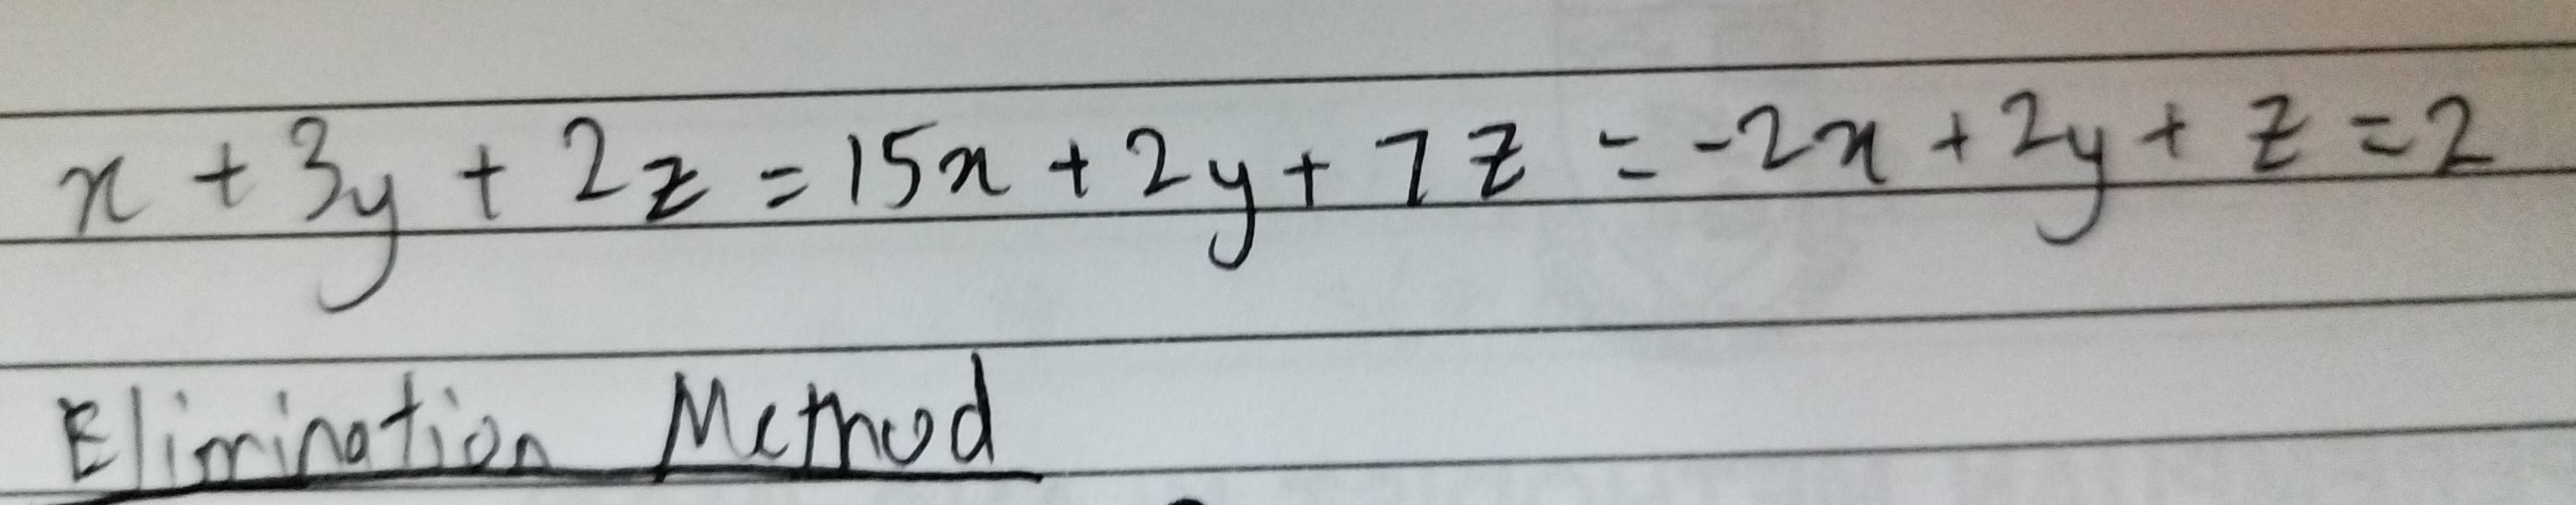 x + 3y + 2z = 15x + 2y + 7z = -2x + 2y + z = 2
Elimination Method